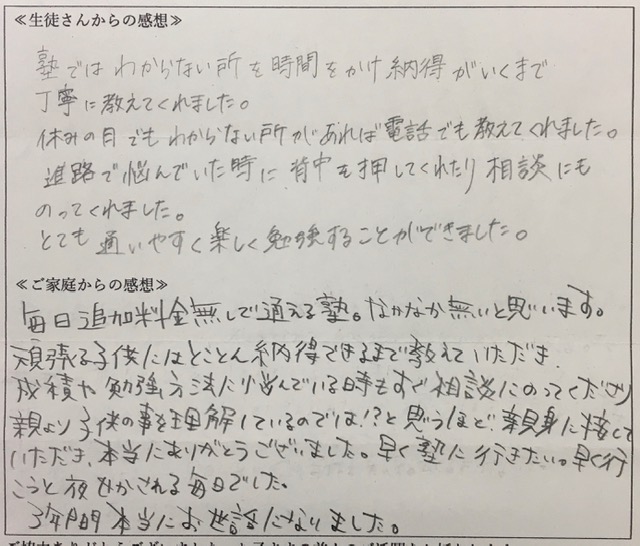 ≪生徒さんからの感想≫
塾ではわからない所を時間をかけ納得がいくまで
丁寧に教えてくれました。
休みの日でもわからない所があれば電話でも教えてくれました。
進路で悩んでいた時に背中を押してくれたり相談にも
のってくれました。
とても通いやすく楽しく勉強することができました。
≪ご家庭からの感想≫
毎日追加料金無しで通える塾。なかなか無いと思います。
頑張る子供にはとことん納得できるまで教えていただき
成績や勉強方法に悩んでいる時もすぐ相談にのってくださり
親より子供の事を理解しているのでは!?と思うほど親身に接して
いただき、本当にありがとうございました。早く塾に行きたい。早く行
こうと夜せかされる毎日でした。
3年間本当にお世話になりました。